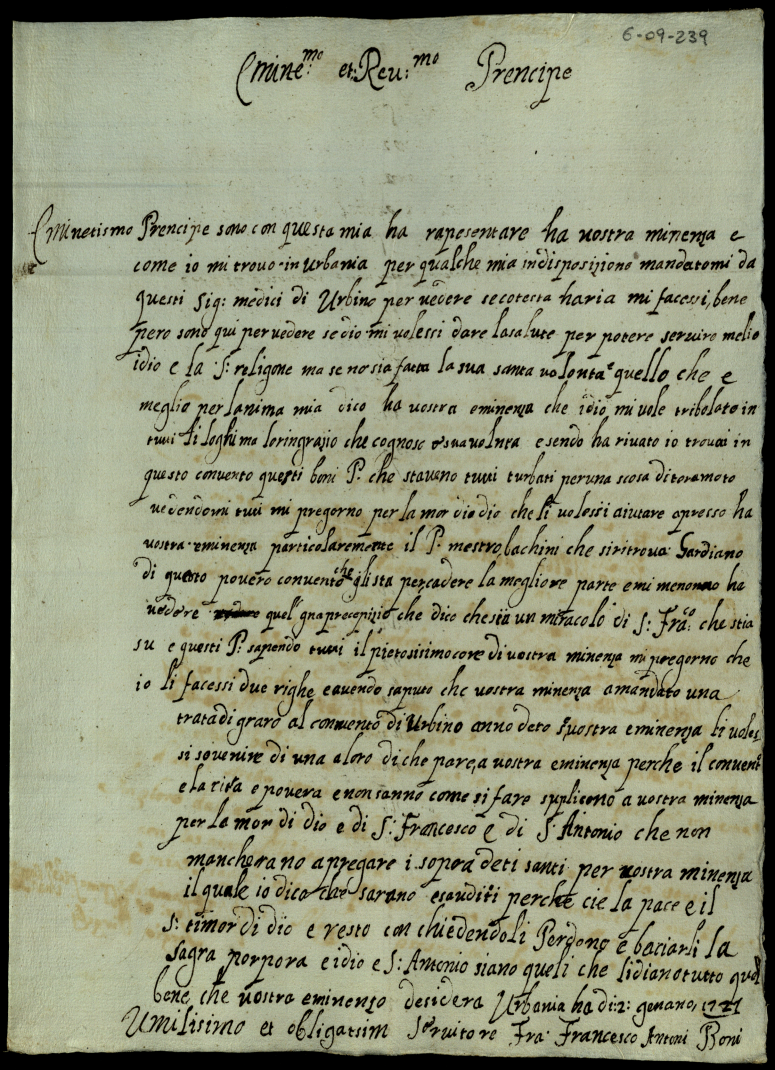 6-09-239
Emine:mo et: Reu:mo Prencipe
Eminetismo Prencipe sono con questa mia ha rapesentare ha vostra minenza e
come io mi trovo in Urbania per qualche mia indisposizione mandatomi da
questi Sig: medici di Urbino per vedere se cotesta haria mi facessi, bene
pero sono qui per vedere se dio mi volessi dare la salute per potere servire melio
idio e la S: religone ma se no sia fatta la sua santa volonta e quello che e
meglio per lanima mia dico ha vostra eminenza che idio mi vole tribolato in
tutti li loghi ma lo ringrazio che cognosc e sua volnta e sendo ha rivato io trovai in
questo convento questi boni P. che stavano tutti turbati per una scosa di teremoto
vedendomi tutti mi pregorno per la mor di dio che li volessi aiutare apresso ha
vostra eminenza particolaremente il P. mestro, bachini che si ritrova Gardiano
di questo povero convento che gli sta per cadere la megliore parte e mi menorno ha
vedere quel gna precepizio che dico che sia un miracolo di S: Fra:co che stia
su e questi P. sapendo tutti il pietosisimo core di vostra minenza mi pregorno che
io li facessi due righe e avendo saputo che vostra minenza a mandato una
trata di grano al convento di Urbino anno deto se vostra eminenza li voles
si sovenire di una a loro di che pare, a vostra eminenza perche il convent
e la cità e povera e non sanno come si fare suplicono a vostra minenza
per la mor di dio e di S: Francesco e di S: Antonio che non
mancherano a pregare i sopra deti santi per vostra minenza
il quale io dico che sarano esauditi perche cie la pace e il
S: timor di dio e resto con chiedendoli Perdono e baciarli la
sagra porpora e idio e S: Antonio siano queli che li diano tutto quel
bene che vostra eminenza desidera Urbania ha di 2: genaro, 1727
Umilisimo et obligatsim Servitore Fra Francesco Antoni Boni